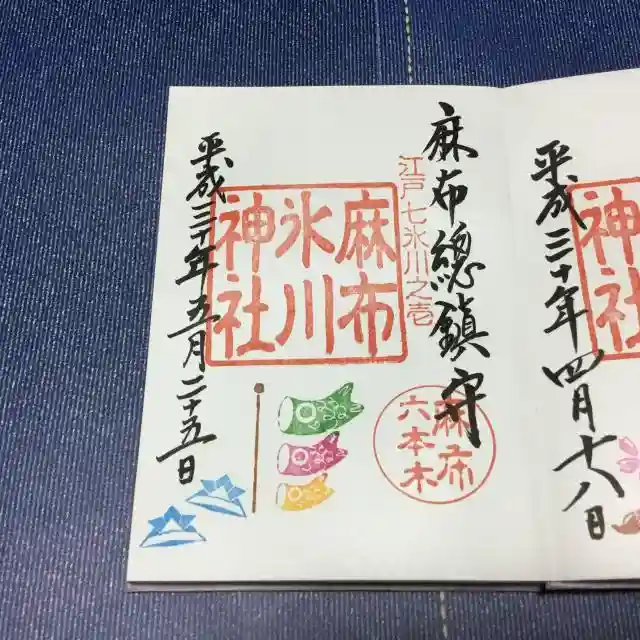 平成三十年四月十八日
神社
麻布總鎮守
江戸七氷川之壱
麻布
氷川
神社
麻布
六本木
平成三十年五月二十五日